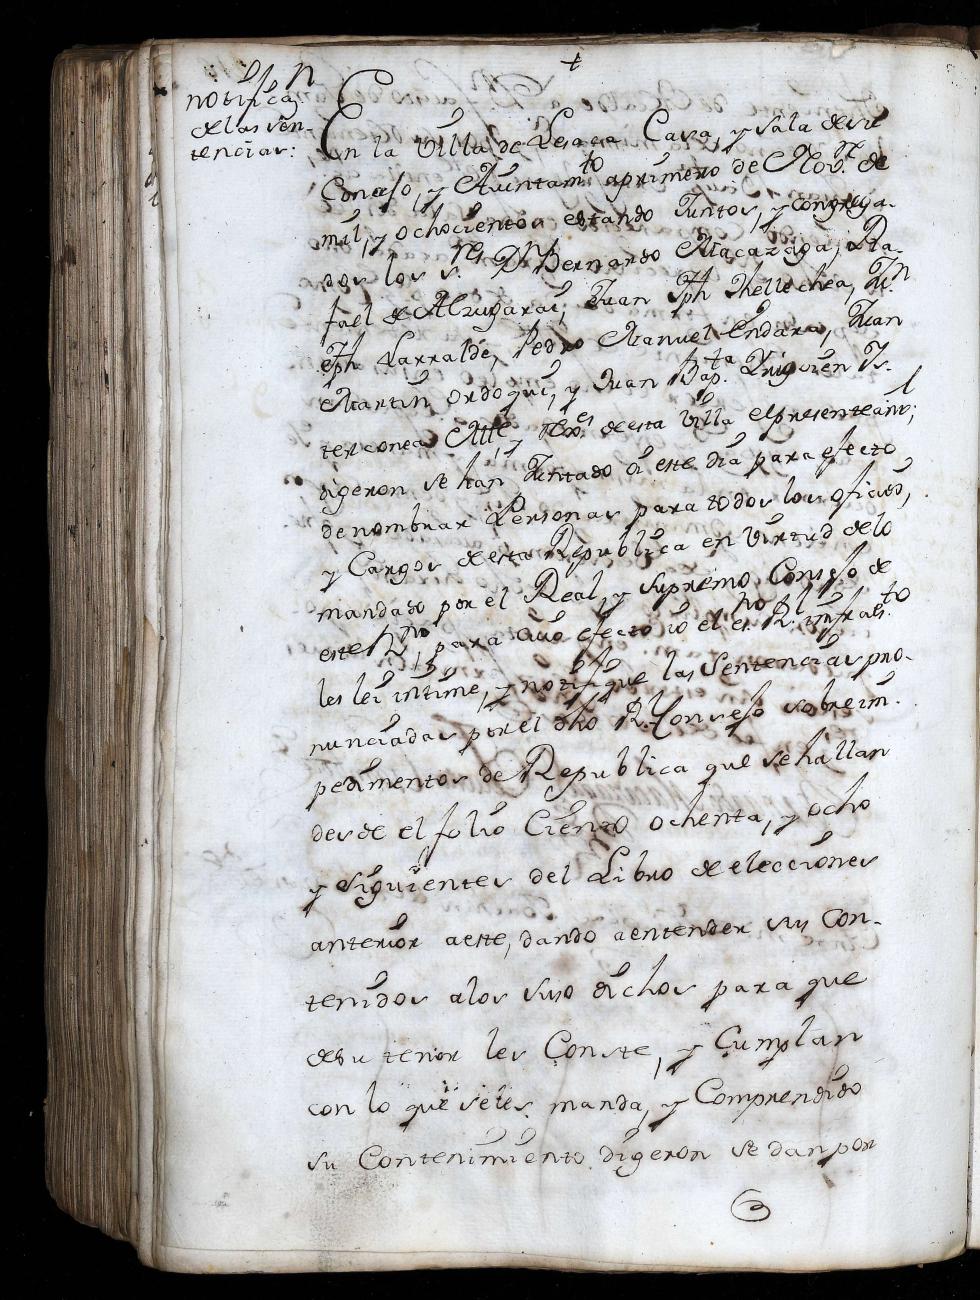 +
notificaⁿ
de las sen-
tencias:
En la Villa de Lesaca Casa, y sala de su
Concejo, y Aiuntamᵗᵒ a primero de Novᵉ. de
mil, y ochocientos estando Juntos, y congrega-
dos los sʳᵉˢ Dⁿ Bernardo Macazaga, Ra-
fael de Alzugarai, Juan Jph Thellechea, Juⁿ
Jph Larralde, Pedro Manuel Endara, Juan
Martin Ordoqui, y Juan Bapᵗᵃ. Yrigoien
Alᵈᵉ y Rexˢ. de esta Villa el presente año,
digeron se han Juntado oi este dia para efecto
de nombrar Personas para todos los oficios,
y Cargos de esta Republica en virtud de lo
mandado por el Real, y supremo Consejo de
este Rⁿᵒ, para cuio efecto io el esⁿᵒ Rˡ. infraesᵗᵒ
les lei intime, y notifique las Sentencias pro-
nunciadas por el dho Rˡ Consejo sobre im-
pedimentos de Republica que se hallan
desde el folio Ciento ochenta, y ocho
y siguientes del Libro de elecciones
anterior a este, dando a entender sus con-
tenidos a los suso dichos para que
de su tenor les Conste, y Cumplan
con lo que se les manda, y Comprendido
su Contenimiento digeron se dan por